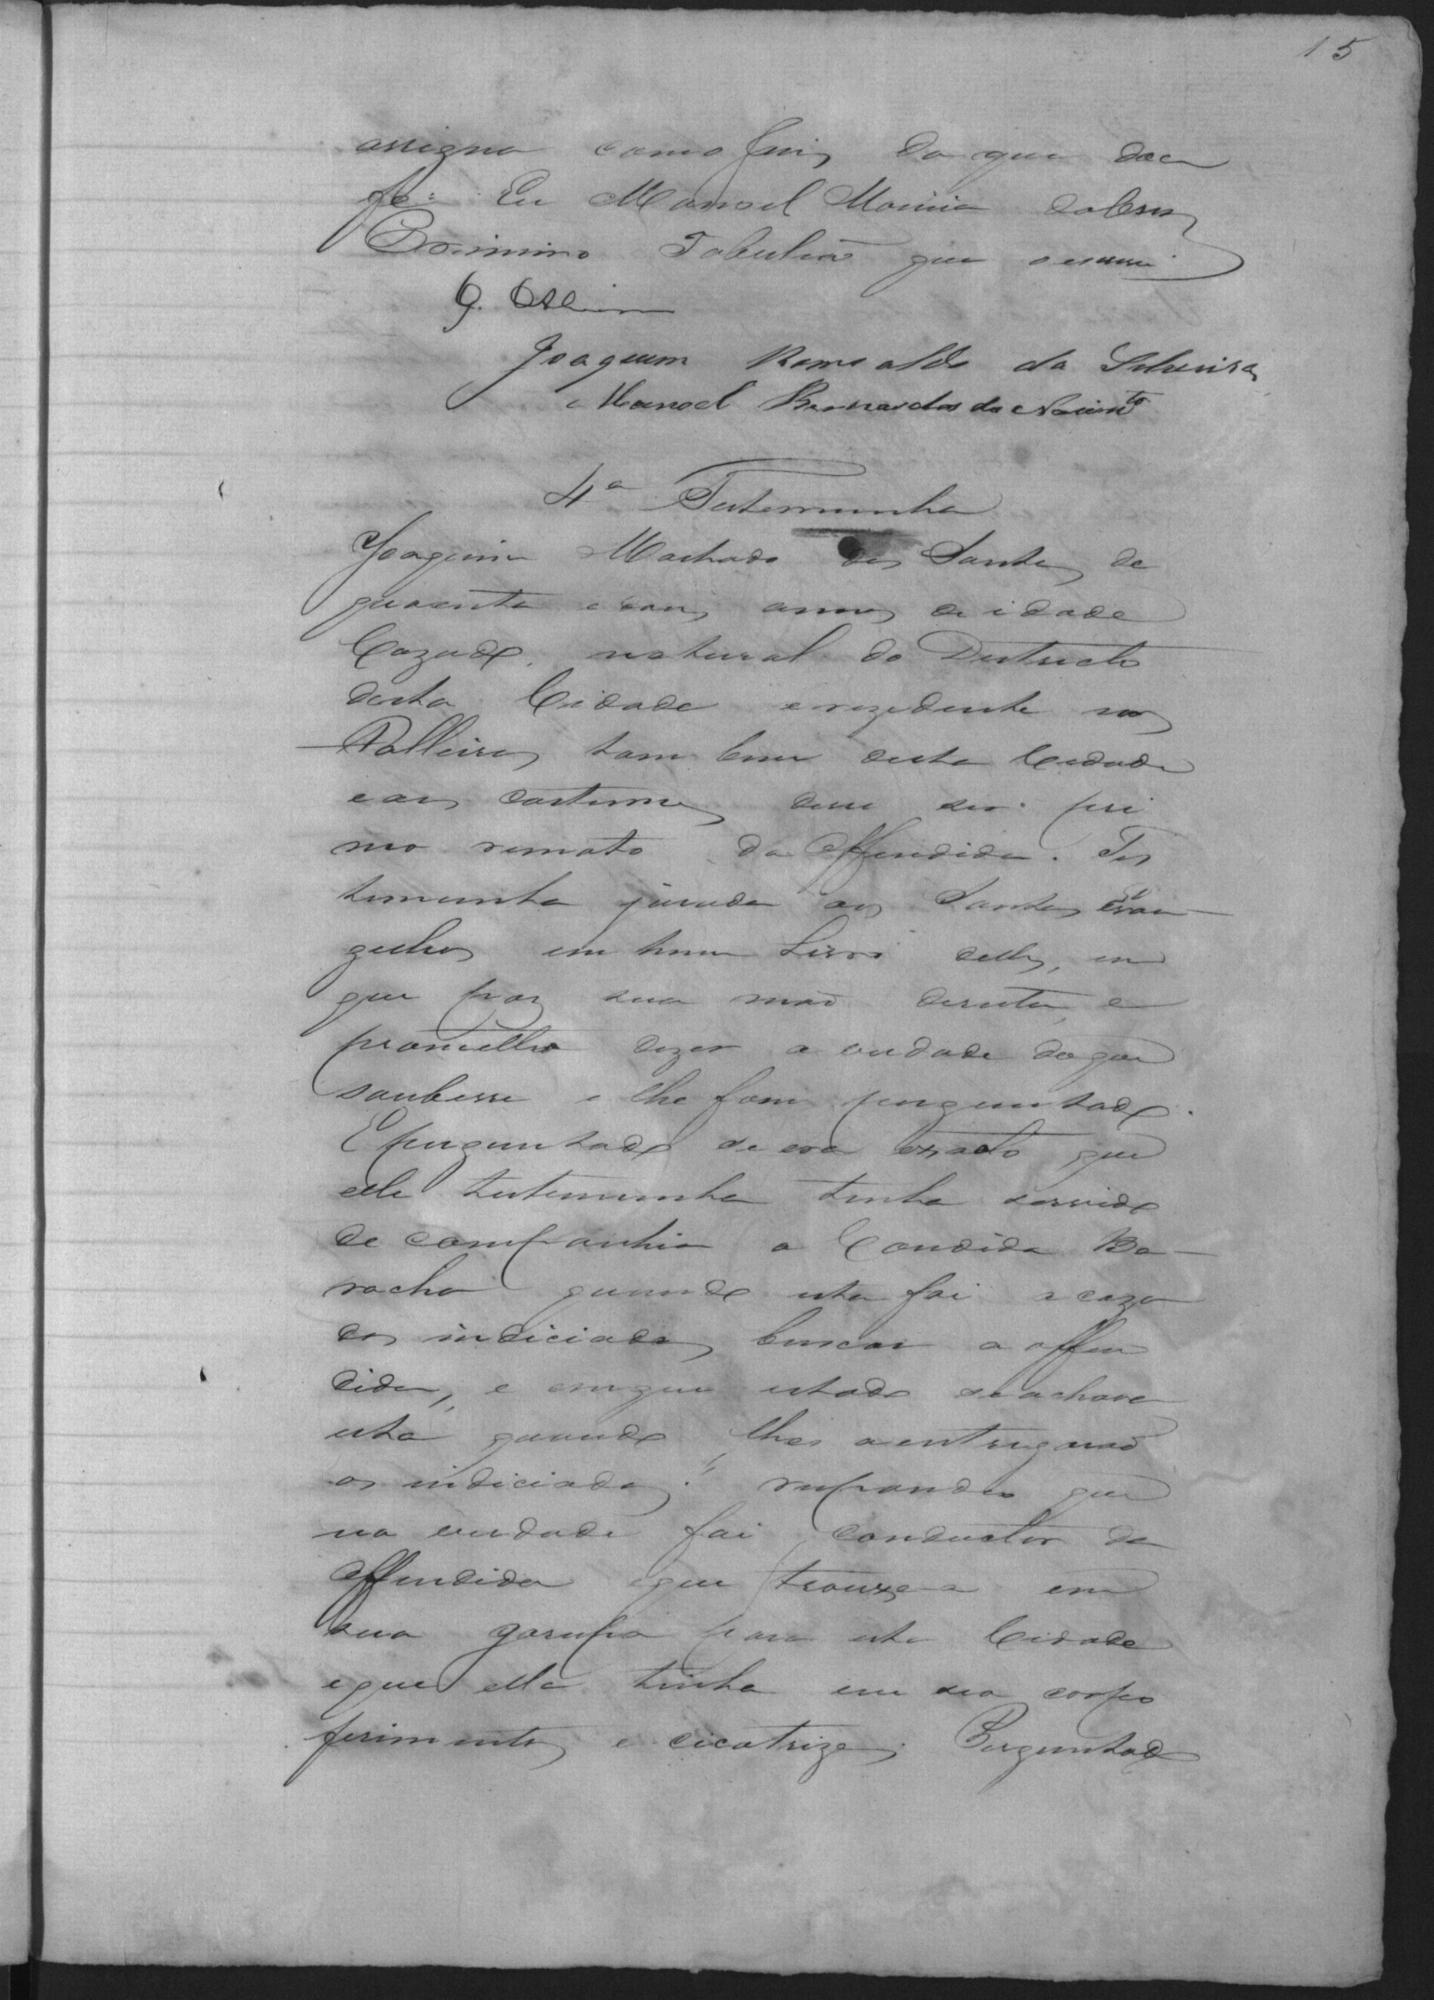 15
assigna com o Juiz, do que dou
fé. Eu Manoel Maria
Tabellião que o escrevi
Joaquim Romualdo da Silveira
Manoel Bernardes do Nascimto
4ª Testemunha
Joaquim Machado dos Santos, de
quarenta e seis annos de idade
Cazado, natural do Districto
desta Cidade e rezidente nos
Palheiros, tambem desta Cidade
e aos costumes disse ser pri
mo remoto da offendida. Tes
temunha jurada aos Santos Evan
gelhos em hum Livro delles, em
que poz sua mão direita, e
prometteo dizer a verdade do que
soubesse e lhe fosse perguntado.
E perguntado se era exacto que
elle testemunha tinha servido
de companhia a Candida Ba
racho quando esta foi a caza
dos indiciados, buscar a offen
dida, e em que estado se achava
esta quando lhes a entregarão
os indiciados? respondeo que
na verdade foi conductor da
offendida e que trouxe-a em
sua garupa para esta Cidade
e que ella tinha em seo corpo
ferimentos e cicatrizes. Perguntado